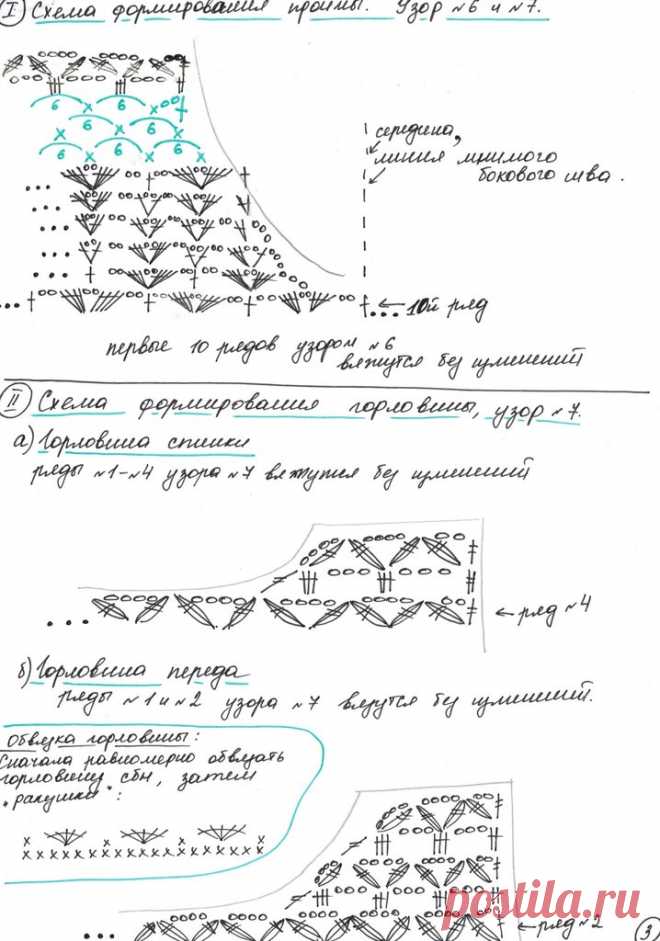 I) Схема формирования проймы. Узор №6 и №7.
6 6 6
6 6
6 6 6
середина,
линия мнимого
бокового шва.
10й ряд
первые 10 рядов узором №6
вяжутся без изменений
II Схема формирования горловины, узор №7.
а) Горловина спинки
ряды №1-№4 узора №7 вяжутся без изменений
ряд №4
б) Горловина переда
ряды №1 и №2 узора №7 вяжутся без изменений.
Обвязка горловины:
Сначала равномерно обвязать
горловину сбн, затем
"ракушки":
ряд №2
3
postila.ru